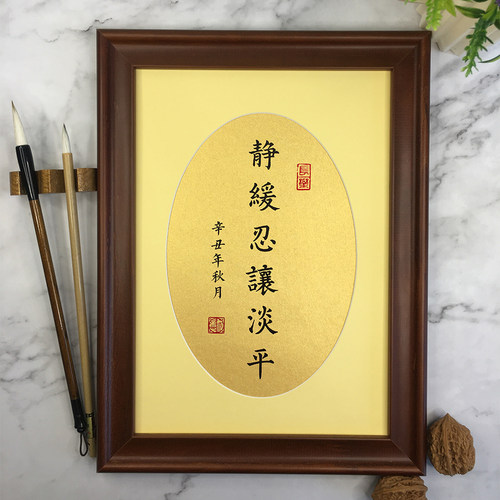 静緩忍讓淡平
辛丑年秋月